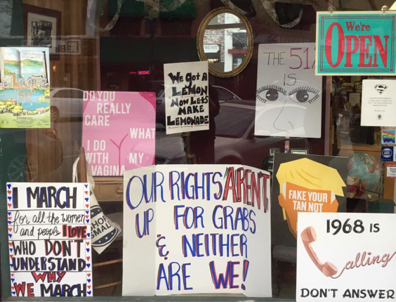 We're
OPEN
THE 51%
IS
WE GOT A
LEMON
NOW LETS
MAKE
LEMONADE
DO YOU
REALLY
CARE WHAT
I DO
WITH MY
VAGINA
I MARCH
for all the women
and people I LOVE
WHO DON'T
UNDERSTAND
WHY
WE MARCH
OUR RIGHTS ARENT
UP FOR GRABS
& NEITHER
ARE WE!
FAKE YOUR
TAN NOT
1968 IS
Calling
DON'T ANSWER